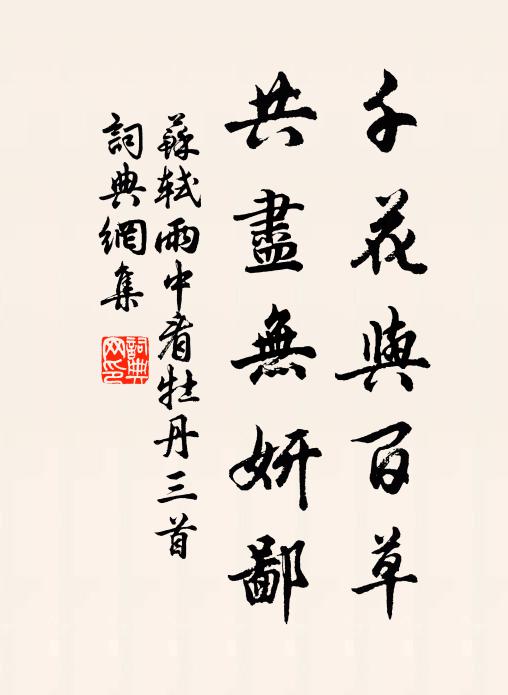 千花與百草
共盡無妍鄙
蘇軾雨中看牡丹三首
詞典網集
詞典網印